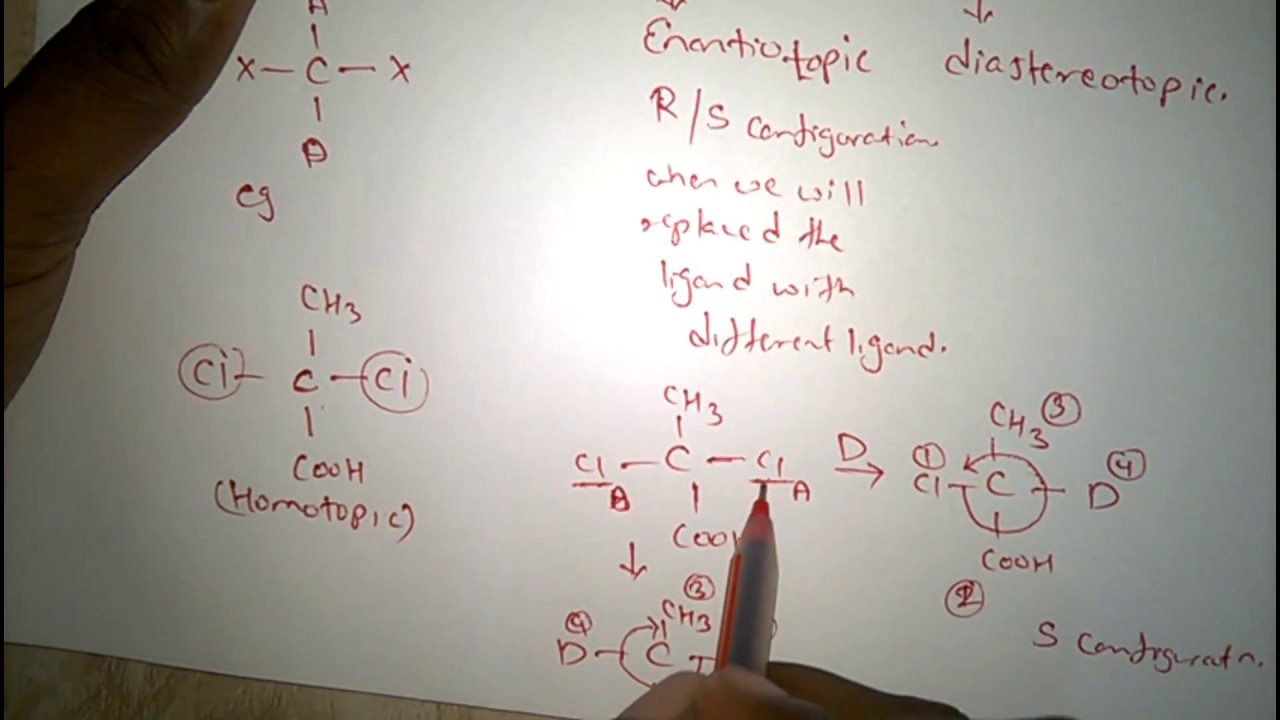 A
X—C—X
B
eg
CH3
Cl—C—Cl
COOH
(Homotopic)
Enantiotopic
diastereotopic.
R/S configuration
when we will
replaced the
ligand with
different ligand.
CH3
Cl—C—Cl
B
A
COOH
D
CH3 3
1
Cl—C—D
4
COOH
2
S configuratn.
3
4
CH3
D—C